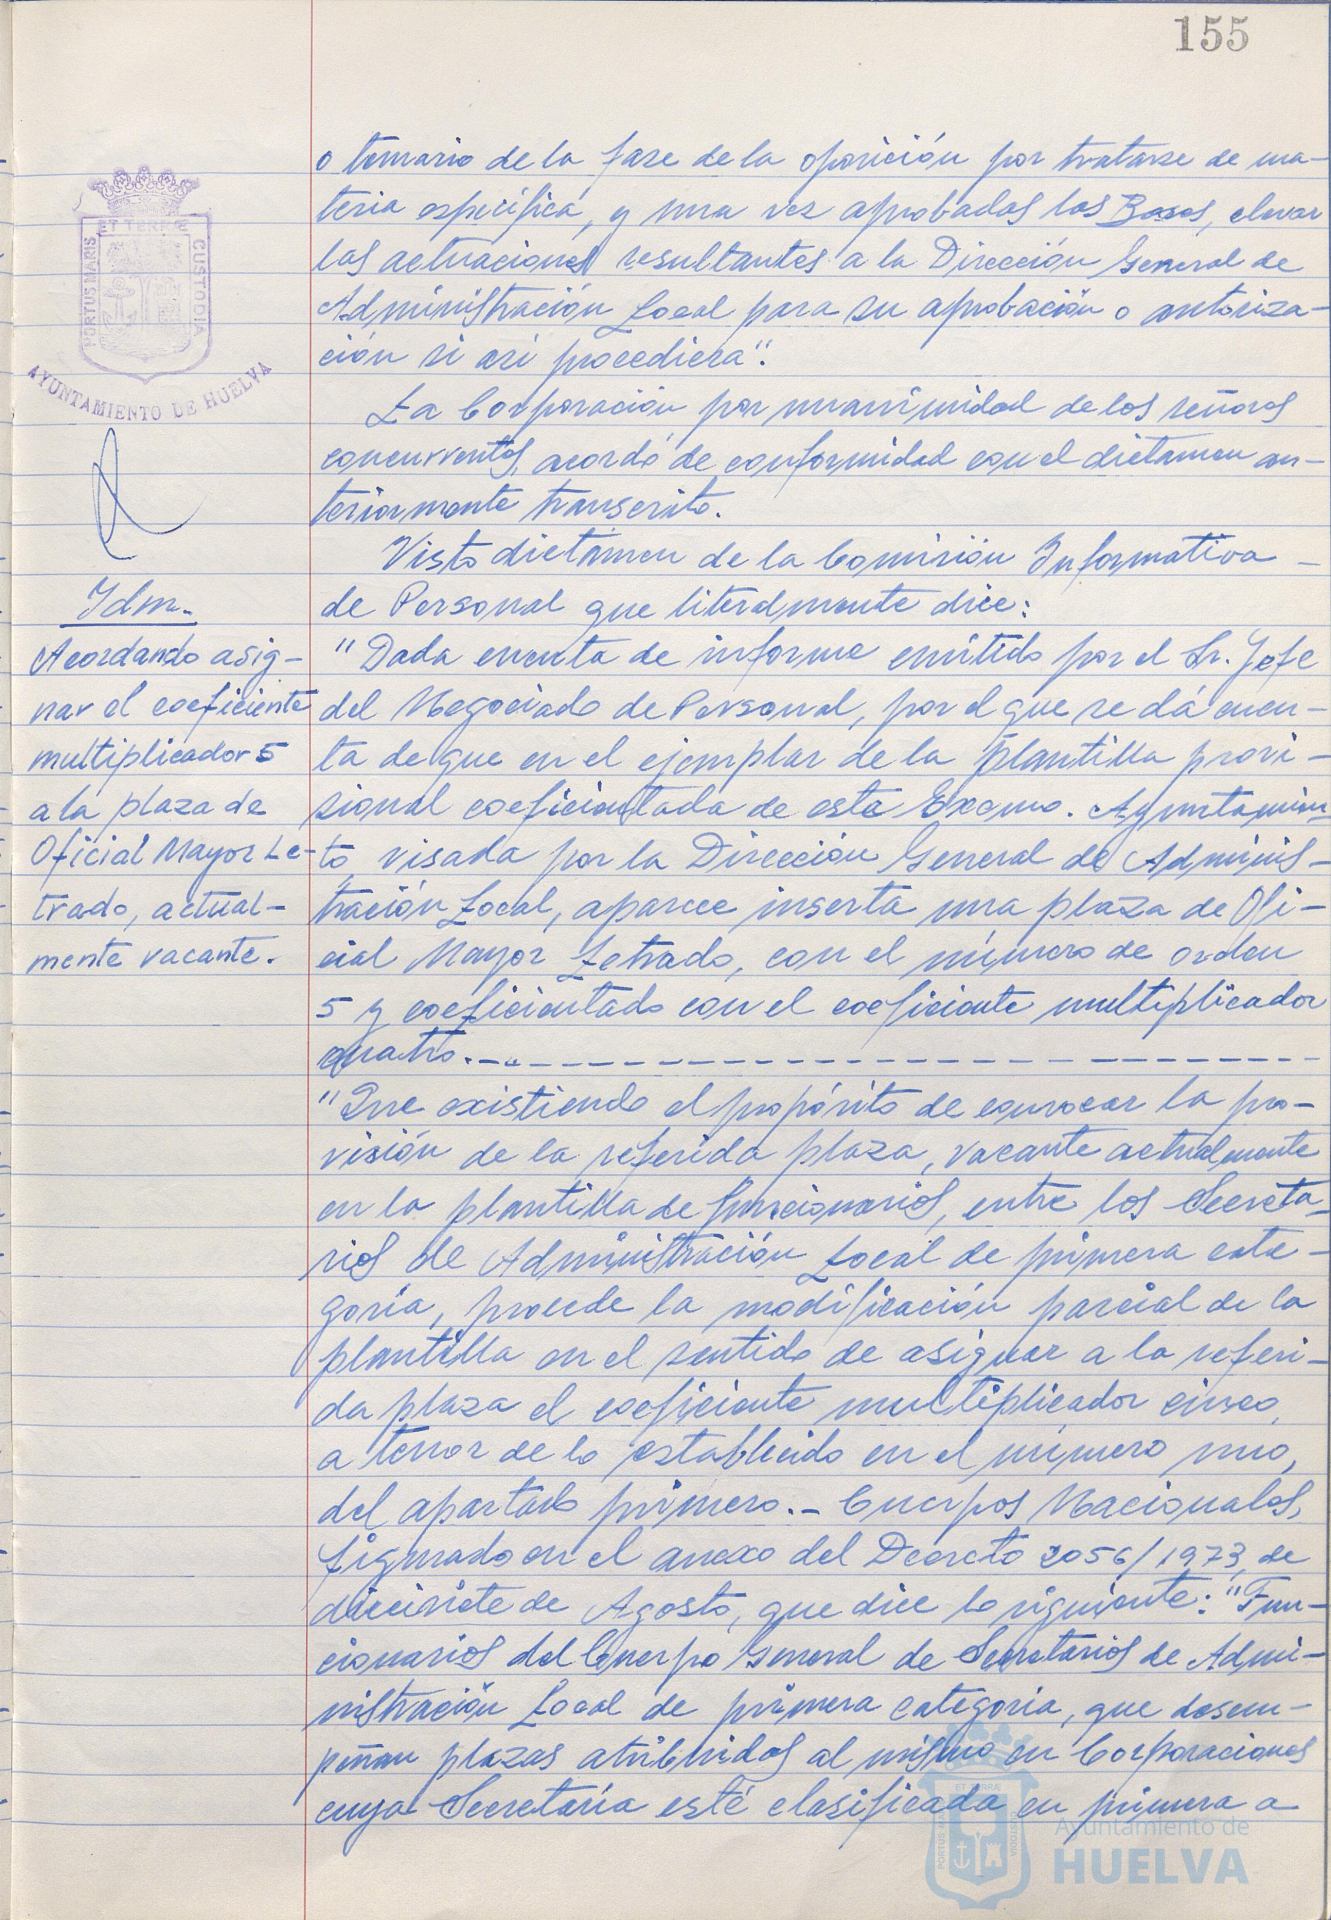 155
o temario de la fase de la oposición por tratarse de ma-
teria específica, y una vez aprobadas las Bases, elevar
las actuaciones resultantes a la Dirección General de
Administración Local para su aprobación o autoriza-
ción si así procediera".
La Corporación por unanimidad de los señores
concurrentes, acordó de conformidad con el dictamen an-
teriormente transcrito.
Visto dictamen de la Comisión Informativa -
de Personal que literalmente dice:
"Dada cuenta de informe emitido por el Sr. Jefe
del Negociado de Personal, por el que se dá cuen-
ta de que en el ejemplar de la plantilla provi-
sional coeficientada de este Excmo. Ayuntamien-
to, visada por la Dirección General de Adminis-
tración Local, aparece inserta una plaza de Ofi-
cial Mayor Letrado, con el número de orden
5 y coeficientado con el coeficiente multiplicador
cuatro.-
"Que existiendo el propósito de convocar la pro-
visión de la referida plaza, vacante actualmente
en la plantilla de funcionarios, entre los Secreta-
rios de Administración Local de primera cate-
goría, procede la modificación parcial de la
plantilla en el sentido de asignar a la referi-
da plaza el coeficiente multiplicador cinco,
a tenor de lo establecido en el número uno,
del apartado primero.- Cuerpos Nacionales,
figurado en el anexo del Decreto 2056/1973, de
diecisiete de Agosto, que dice lo siguiente: "Fun-
cionarios del Cuerpo General de Secretarios de Admi-
nistración Local de primera categoría, que desem-
peñan plazas atribuidas al mismo en Corporaciones
cuya Secretaría esté clasificada en primera a
PORTUS MARIS
ET TERRÆ
CUSTODIA
AYUNTAMIENTO DE HUELVA
Idm.
Acordando asig-
nar el coeficiente
multiplicador 5
a la plaza de
Oficial Mayor Le-
trado, actual-
mente vacante.
ET TERRÆ
CUSTODIA
Ayuntamiento de
HUELVA